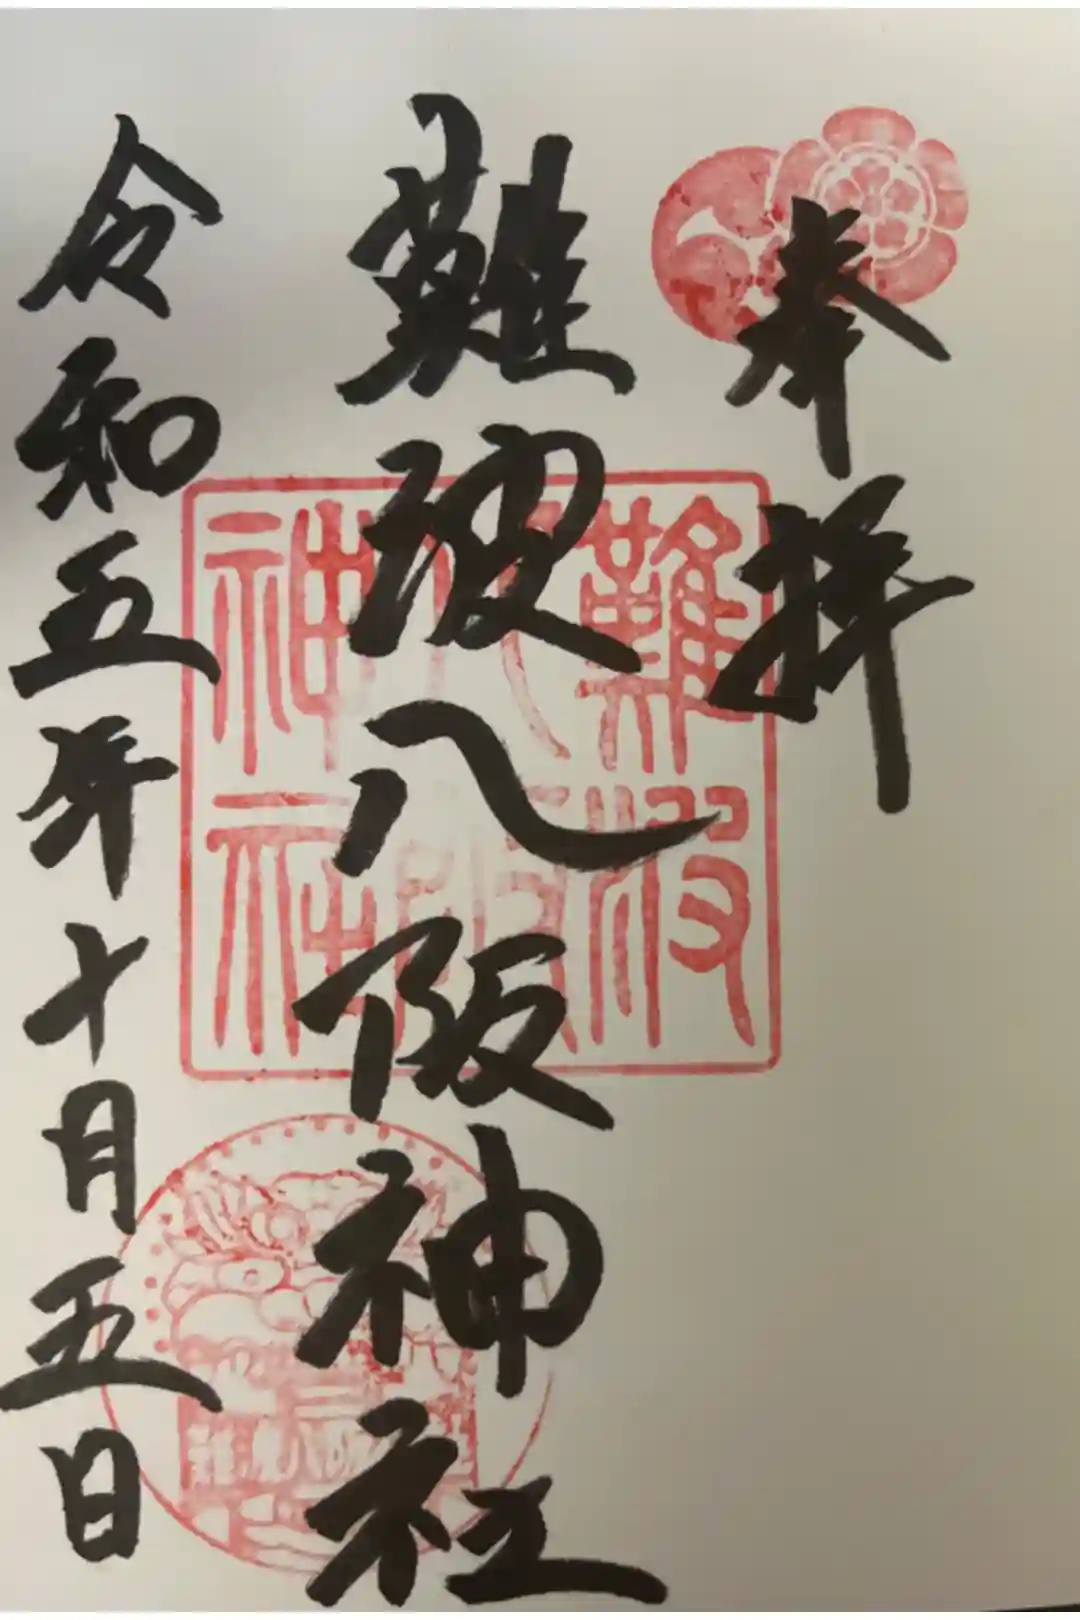 奉拝
難波八阪神社
令和五年十月五日
難波
八阪
神社